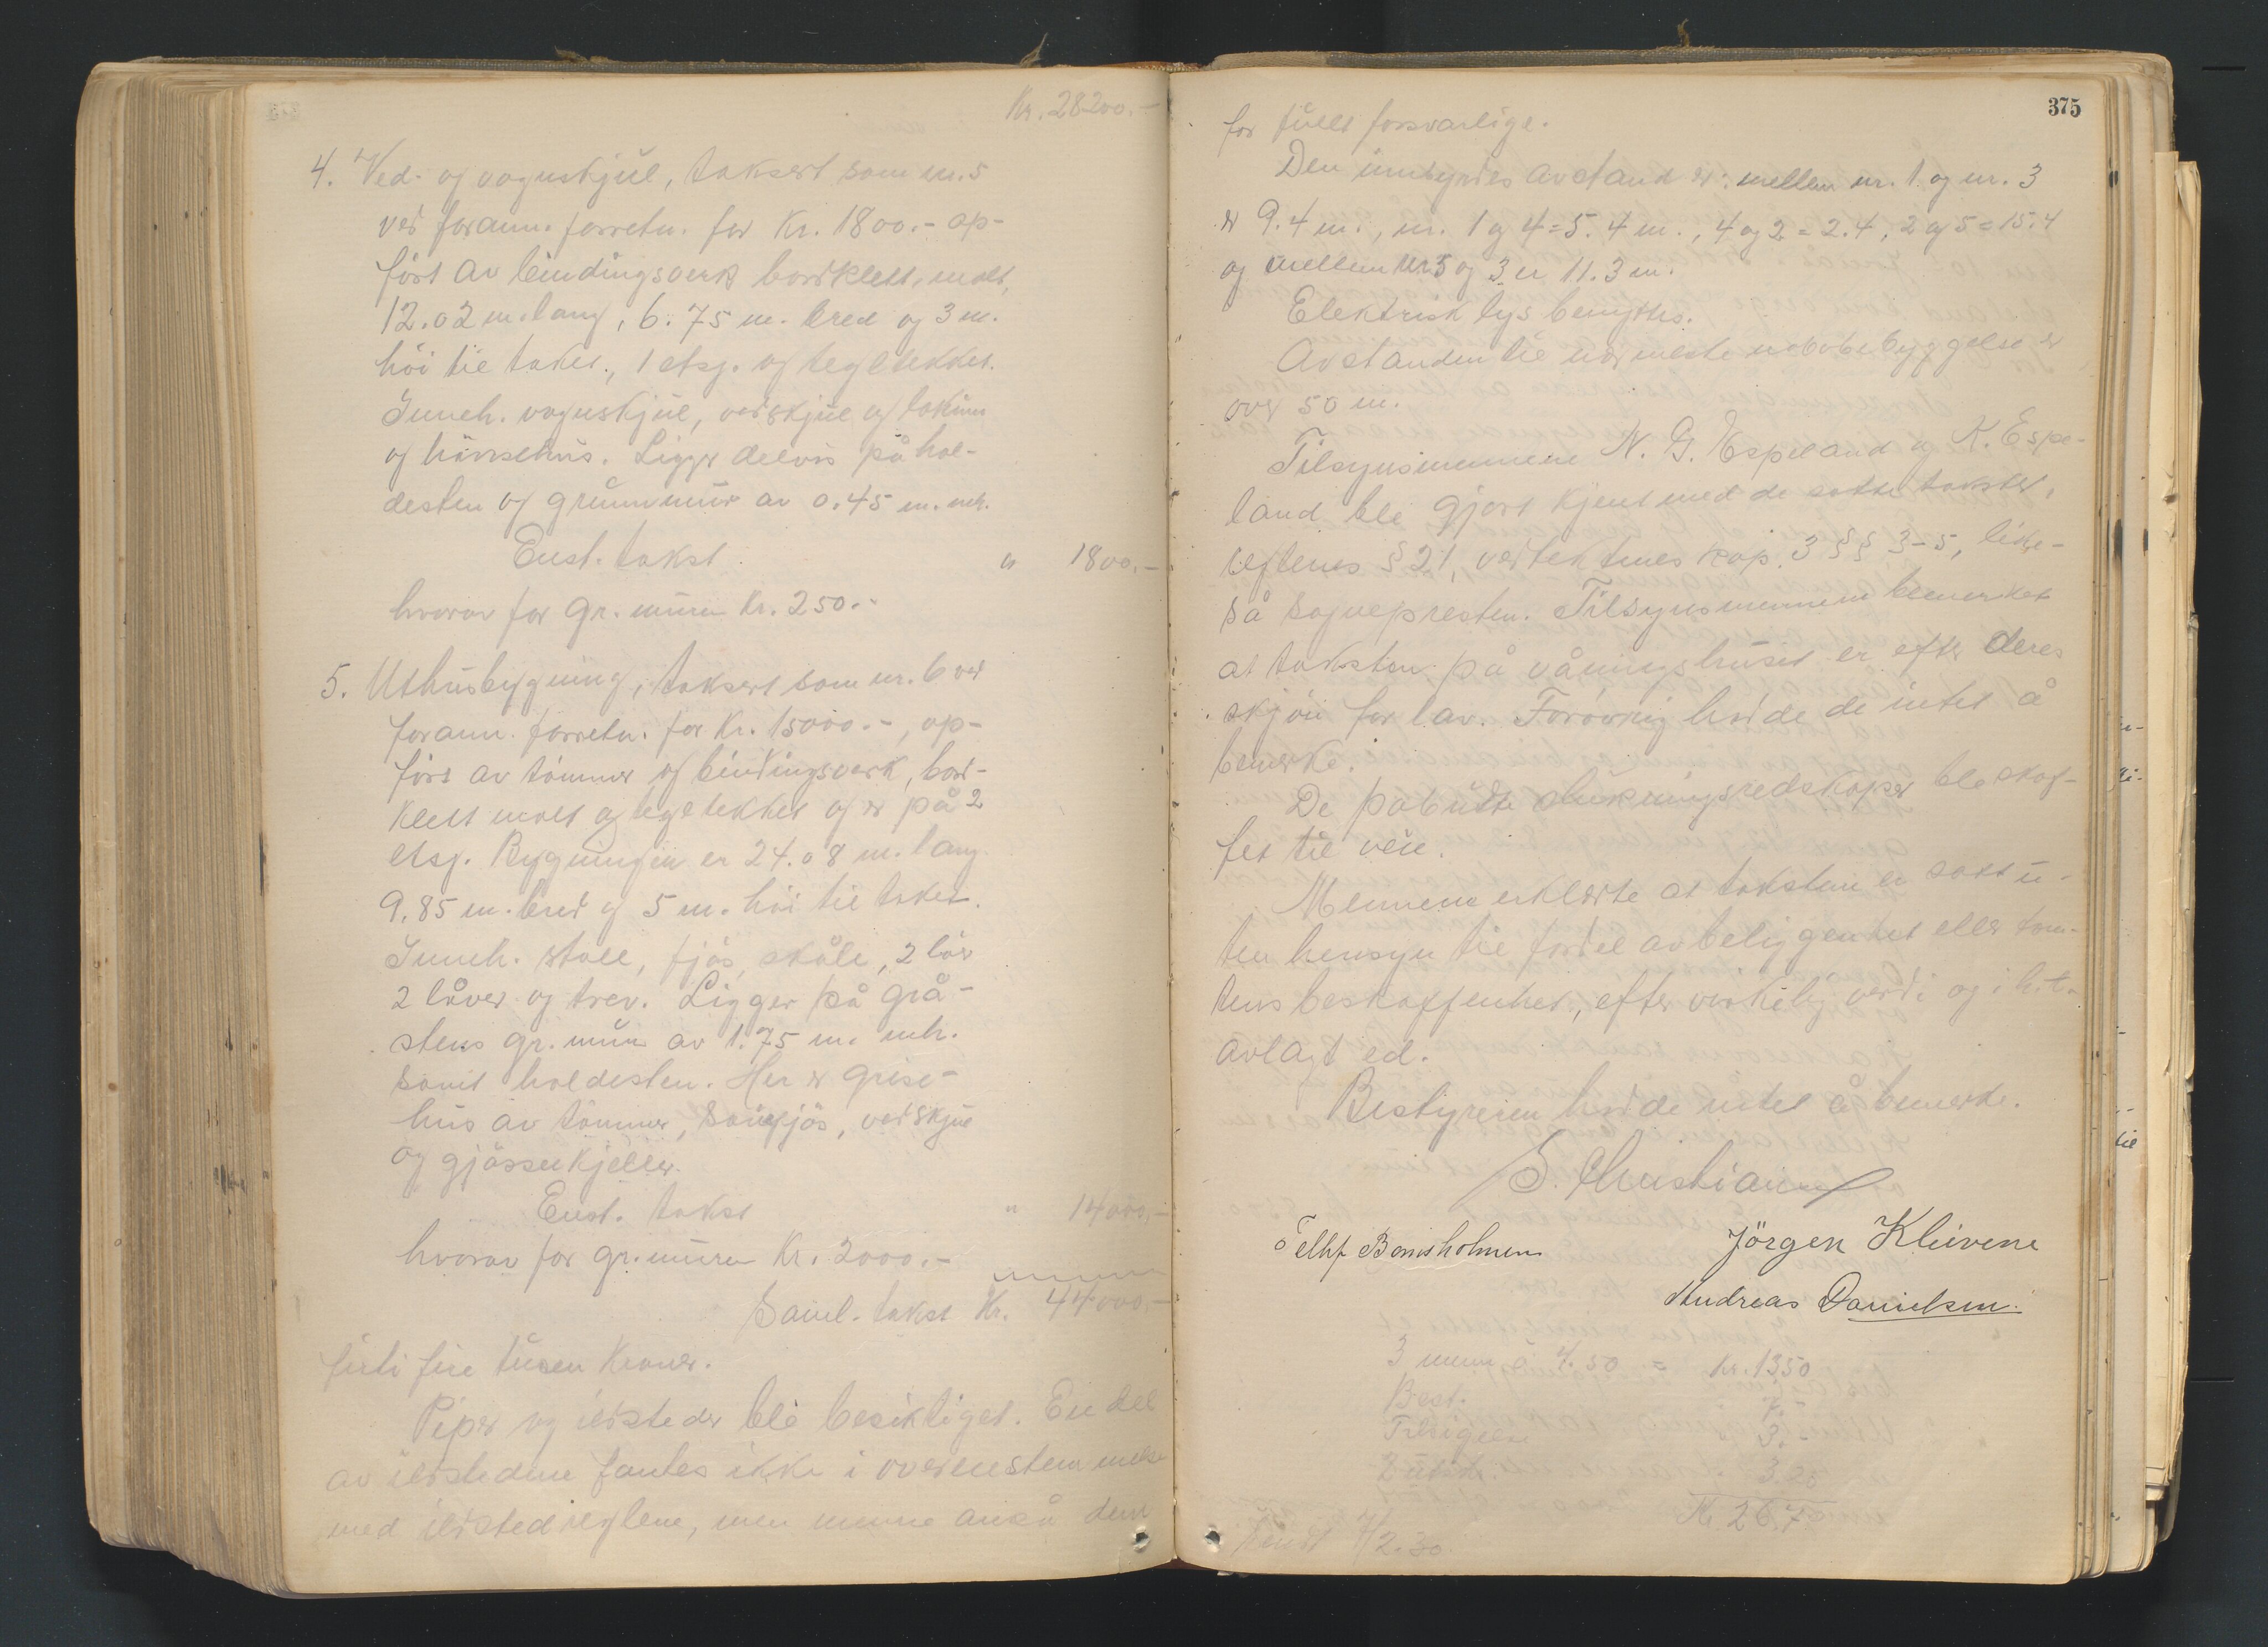 Kr. 28200.-
4. Ved- og vognskjul, taksert som nr. 5
ved forann. forretn. for Kr. 1800.- op-
ført av bindingsverk bordklett, malt,
12.02 m. lang, 6.75 m. bred og 3 m.
höi til taket, 1 etsg. og teglтekket.
Inneh. vognskjul, vedskjul og lokum
og hönsehus. Ligger delvis på hol-
desten og grunnmur av 0.45 m. mh.
Enst. takst " 1800.-
hvorav for gr. muren Kr. 250.-
5. Uthusbygning, taksert som nr. 6 ved
forann. forretn. for Kr. 15000.-, op-
fört av tömmer og bindingsverk, bord-
klett malt og tegltekket og er på 2
etsg. Bygningen er 24.08 m. lang
9.85 m. bred og 5 m. höi til taket.
Inneh. stall, fjös, skåle, 2 lör
2 låver og trev. Ligger på grå-
stens gr. mur av 1.75 m. mh.
samt holdesten. Her er grise-
hus av tömmer, sauefjös, vedskjul
og gjösselkjeller.
Enst. takst " 14000,-
hvorav for gr. muren Kr. 2000.-
Saml. takst Kr. 44000,-
firti fire tusen kroner.
Piper og ildsteder blé besiktiget. En del
av ildstedene fantes ikke i overenstemmelse
med ildstedreglene, men menne anså dem
375
for fullt forsvarlige.
Den innbyrdes avstand er: mellem nr. 1 og nr. 3
er 9.4 m., nr. 1 og 4 = 5.4 m., 4 og 2 = 2.4, 2 og 5 = 15.4
og mellem nr 5 og 3 er 11.3 m.
Elektrisk lys benyttes.
Avstanden til nærmeste nabobebyggelse er
over 50 m.
Tilsynsmennene N. G. Espeland og K. Espe-
land ble gjort kjent med de satte takster,
§ 21, vedtektenes kap. 3 §§ 3-5, like-
så sognepresten. Tilsynsmennene bemerket
at taksten på våningshuset er efter deres
skjön for lav. Forövrig hadde de intet å
bemerke.
De påbudte slukningsredskaper ble skaf-
fet til veie.
Mennene erklærte at taksten er satt u-
ten hensyn til fordel av beliggenhet eller tom-
tens beskaffenhet, efter virkelig verdi og i hht.
avlagt ed.
Bestyreren hadde intet å bemerke.
S. Christiansen
Tellef Bomsholmen Jörgen Kleivene
Andreas Danielsen.
3 menn à 4.50 = Kr. 1350
Best. 7.-
Tilsigelse 3.-
3.20
Kr. 26.7
Sendt 7/2.30.